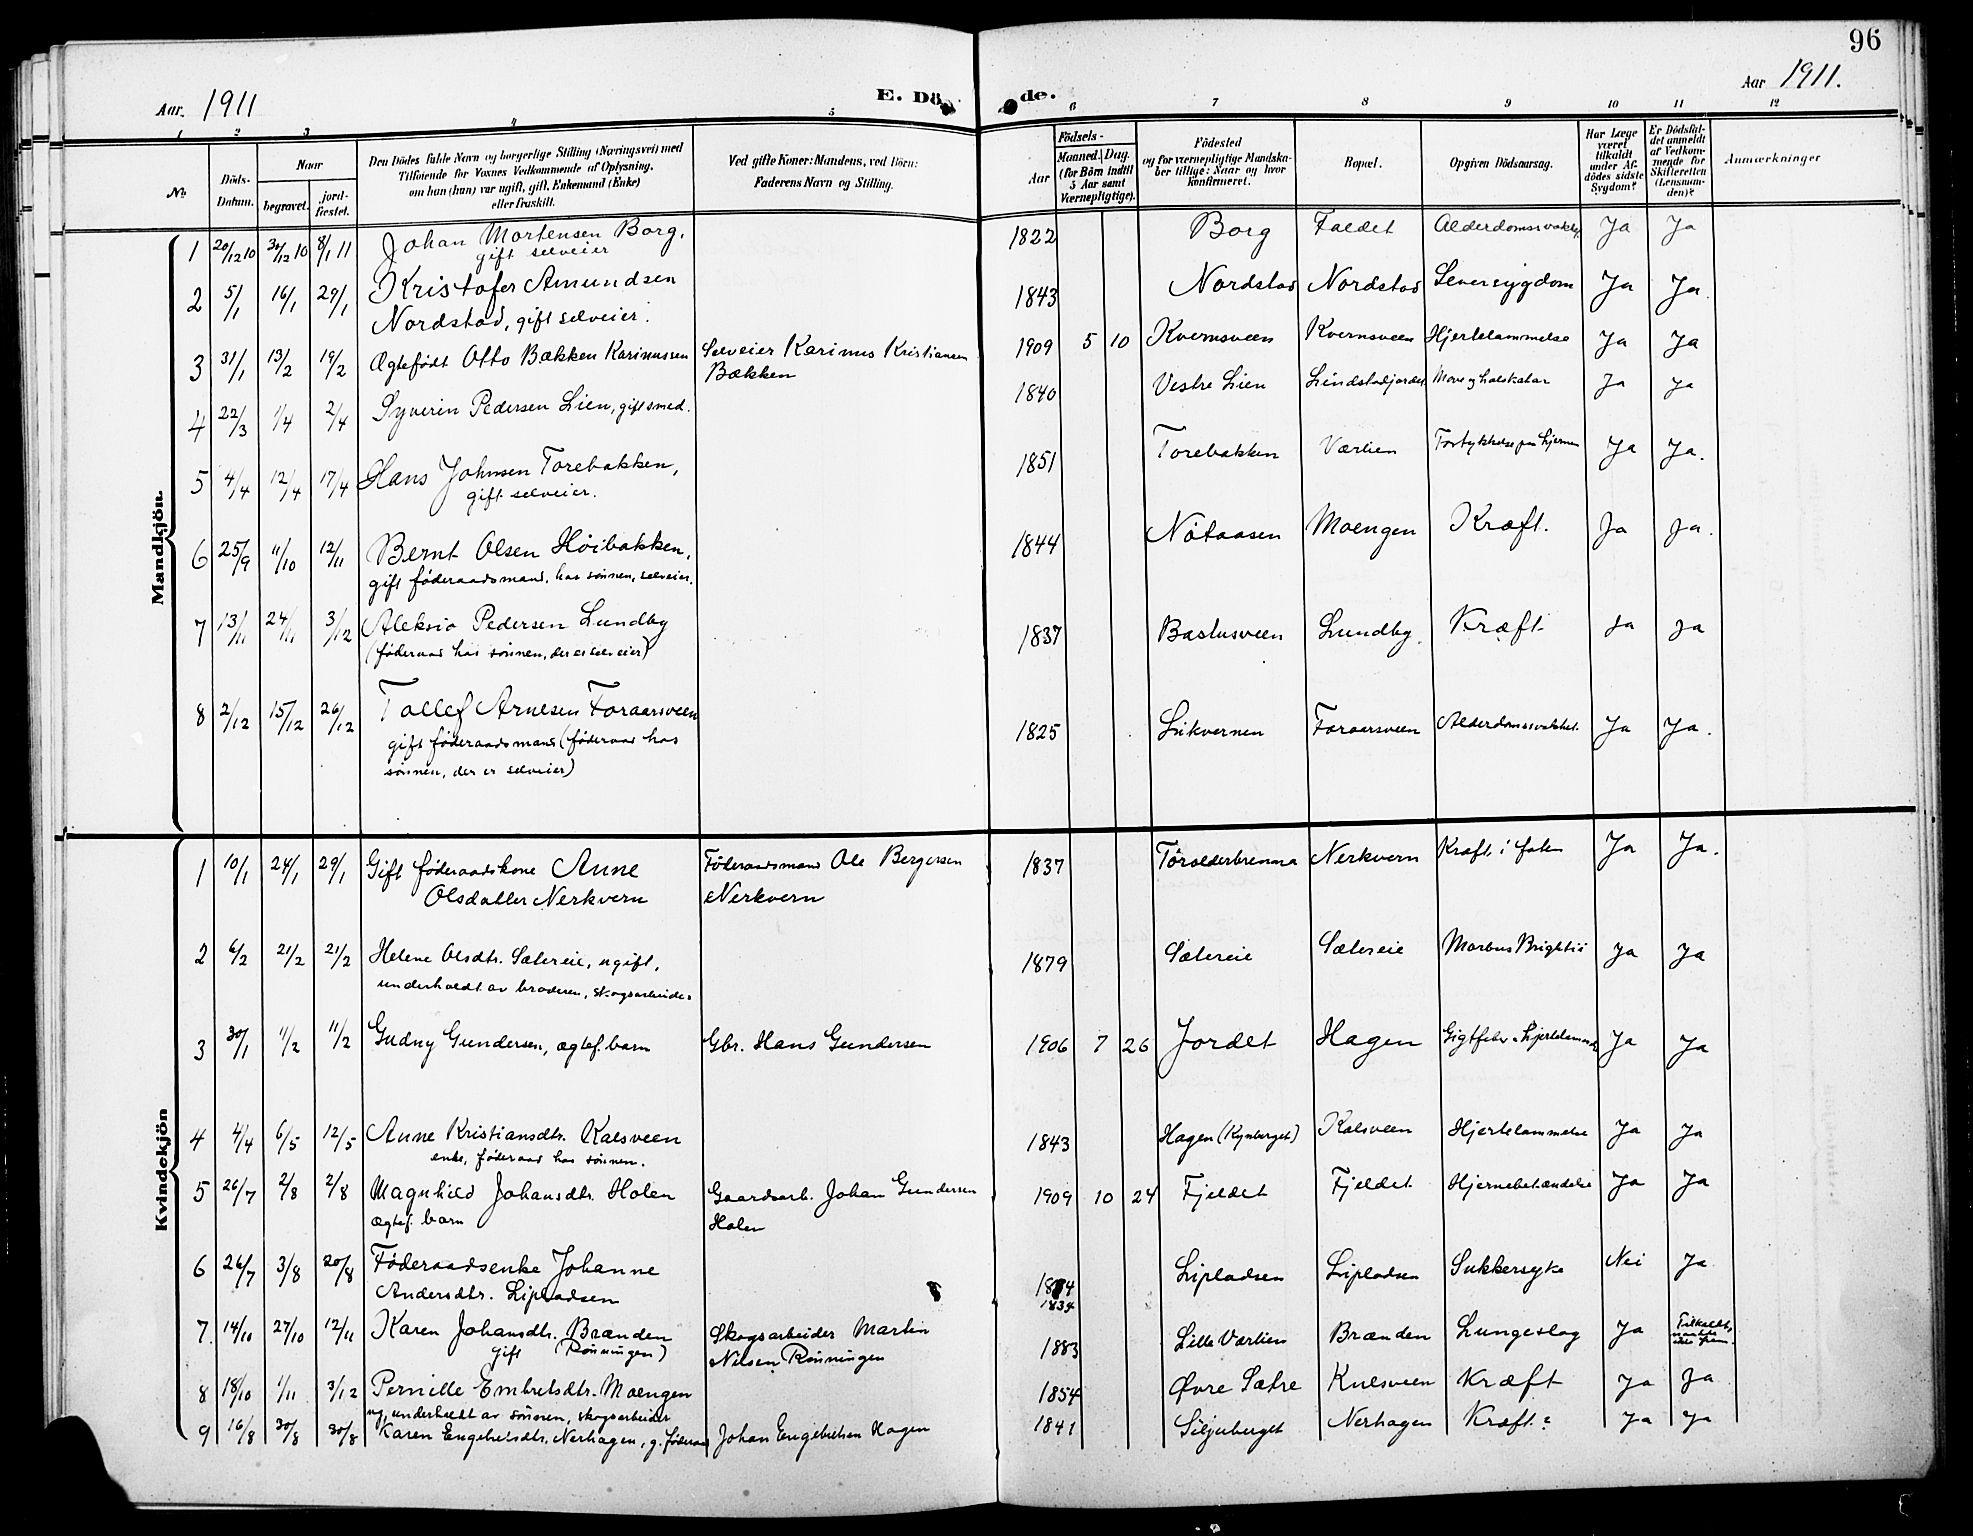 96
Aar. 1911
E. Dö de.
Aar 1911.
1 2 3 4 5 6 7 8 9 10 11 12
No.
Döds-Datum.
Naar
begravet.
jord-fæstet.
Den Dödes fulde Navn og borgerlige Stilling (Næringsvei) med
Tilföiende for Voxnes Vedkommende af Oplysning,
om han (hun) var ugift, gift, Enkemand (Enke)
eller fraskilt.
Ved gifte Koner: Mandens, ved Börn:
Faderens Navn og Stilling.
Aar
Födsels-
Maaned. Dag.
(for Börn indtil
5 Aar samt
Værnepligtige).
Födested
og for værnepligtige Mandskaber tillige: Naar og hvor
konfirmeret.
Bopæl.
Opgiven Dödsaarsag.
Har Læge
været
tilkaldt
under Afdödes sidste
Sygdom?
Er Dödsfaldet anmeldt
af Vedkommende for
Skifteretten
(Lensmanden)?
Anmærkninger
Mandkjön.
1 20/12 10 30/12 10 8/1 11 Johan Mortensen Borg, 1822 Borg Faldet Alderdomssvakh. Ja Ja
gift selveier
2 5/1 16/1 29/1 Kristofer Amundsen 1843 Nordstad Nordstad Leversygdom Ja Ja.
Nordstad, gift selveier.
3 31/1 13/2 19/2 Ægtefødt Otto Bækken Karinussen Selveier Karinus Kristiansen 1909 5 10 Kvernsveen Kvernsveen Hjertelammelse Ja Ja
Bækken
4 22/3 1/4 2/4 Syverin Pedersen Lien, gift smed. 1840 Vestre Lien Lindstadjordet Mave og halskatar Ja Ja
5 4/4 12/4 17/4 Hans Johnsen Torebakken, 1851 Torebakken Værlien Fortykkelse paa hjernen Ja Ja.
gift selveier.
6 25/9 11/10 12/11 Bernt Olsen Höibakken, 1844 Nötaasen Moengen Kræft. Ja Ja.
gift föderaadsmand, hos sönnen, selveier.
7 13/11 24/11 3/12 Aleksio Pedersen Lundby 1837 Bastusveen Lundby. Kræft Ja Ja
(föderaad hos sönnen, der er selveier)
8 2/12 15/12 26/12 Tollef Arnesen Foraarsveen 1825 Likvernen Foraarsveen Alderdomssvakhet. Ja Ja.
gift föderaadsmand (föderaad hos
sönnen, der er selveier)
Kvindekjön
1 10/1 24/1 29/1 Gift föderaadskone Anne Föderaadsmand Ole Bergersen 1837 Nerkvern Kræft i Ja Ja.
Olsdatter Nerkvern Nerkvern
2 6/2 21/2 21/2 Helene Olsdtr. Sætereie, ugift, 1879 Sætereie Sætereie Morbus Brightii Ja Ja
underholdt av broderen, skogsarbeider
3 30/1 11/2 11/2 Gudny Gundersen, ægtef. barn Gbr. Hans Gundersen 1906 7 26 Jordet Hagen Gigtfeber Hjertelammelse Ja Ja
4 4/4 6/5 12/5 Anne Kristiansdtr. Kalsveen 1843 Hagen (Kynberget) Kalsveen Hjertelammelse Ja Ja
enke, föderaad hos sönnen.
5 26/7 2/8 2/8 Magnhild Johansdtr. Holen Gaardsarb. Johan Gundersen 1909 10 24 Fjeldet Fjeldet Hjernebetændelse Ja Ja
ægtef. barn Holen
6 26/7 3/8 20/8 Föderaadsenke Johanne Lipladsen Lipladsen Sukkersyke Nei Ja
Andersdtr. Lipladsen 1834
7. 14/10 27/10 12/11 Karen Johansdtr. Brænden Skogsarbeider Martin 1883 Lille Værlien Brænden Lungeslag Ja Tilkaldt,
gift (Rönningen) Nilsen Rönningen
8 18/10 1/11 3/12 Pernille Embretsdtr. Moengen 1854 Øvre Sætre Kulsveen Kræft Ja Ja
ug, underholdt av sönnen, skogsarbeider
9 16/8 30/8 30/8 Karen Engebretsdtr. Nerhagen, g. föderaad Johan Engebretsen Hagen 1841 Siljuberget Nerhagen Kræft? Ja Ja